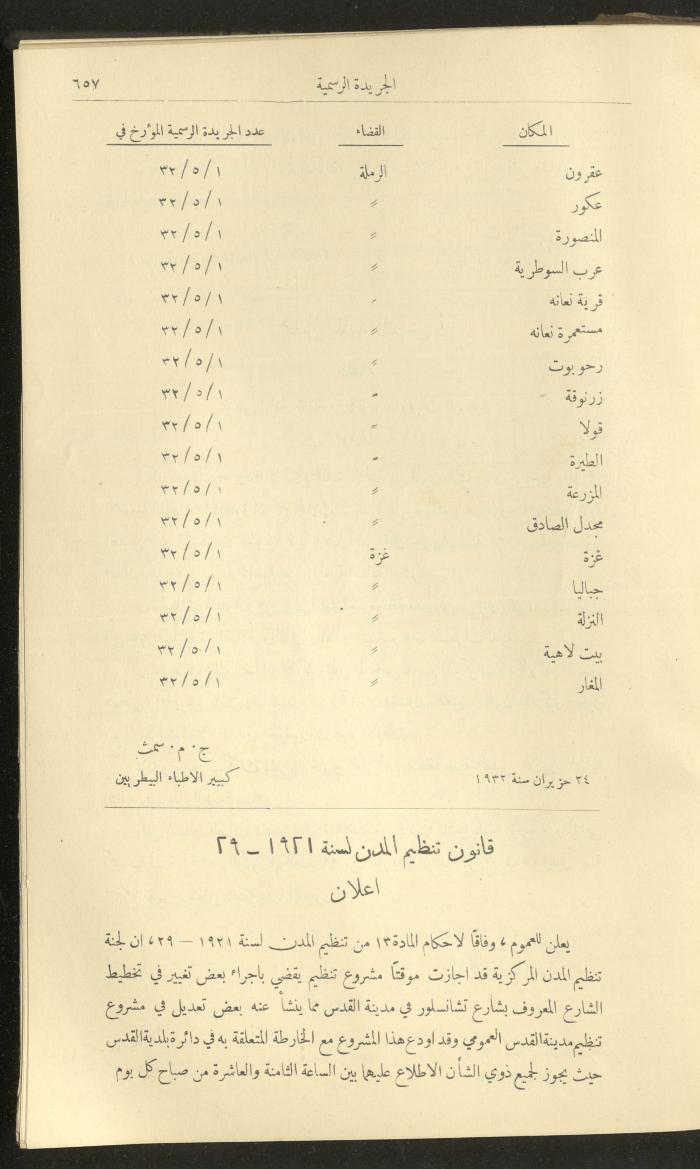 الجريدة الرسمية ٦٥٧
المكان القضاء عدد الجريدة الرسمية المؤرخ في
عقرون الرملة ٣٢/٥/١
عكور〃 ٣٢/٥/١
المنصورة 〃 ٣٢/٥/١
عرب السوطرية 〃 ٣٢/٥/١
قرية نعانه 〃 ٣٢/٥/١
مستعمرة نعانه 〃 ٣٢/٥/١
رحوبوت 〃 ٣٢/٥/١
زرنوقة 〃 ٣٢/٥/١
قولا 〃 ٣٢/٥/١
الطيرة 〃 ٣٢/٥/١
المزرعة 〃 ٣٢/٥/١
مجدل الصادق 〃 ٣٢/٥/١
غزة غزة ٣٢/٥/١
جباليا 〃 ٣٢/٥/١
النزلة 〃 ٣٢/٥/١
بيت لاهية 〃 ٣٢/٥/١
المغار 〃 ٣٢/٥/١
ج. م. سمث
٢٤ حزيران سنة ١٩٣٢ كبيير الاطباء البيطريين
قانون تنظيم المدن لسنة ١٩٢١ – ٢٩
اعلان
يعلن للعموم ، وفاقاً لاحكام المادة ١٣ من تنظيم المدن لسنة ١٩٢١ – ٢٩، ان لجنة
تنظيم المدن المركزية قد اجازت موقتاً مشروع تنظيم يقضي باجراء بعض تغيير في تخطيط
الشارع المعروف بشارع تشانسلور في مدينة القدس مما ينشأ عنه بعض تعديل في مشروع
تنظيم مدينة القدس العمومي وقد اودع هذا المشروع مع الخارطة المتعلقة به في دائرة بلدية القدس
حيث يجوز لجميع ذوي الشأن الاطلاع عليهما بين الساعة الثامنة والعاشرة من صباح كل يوم